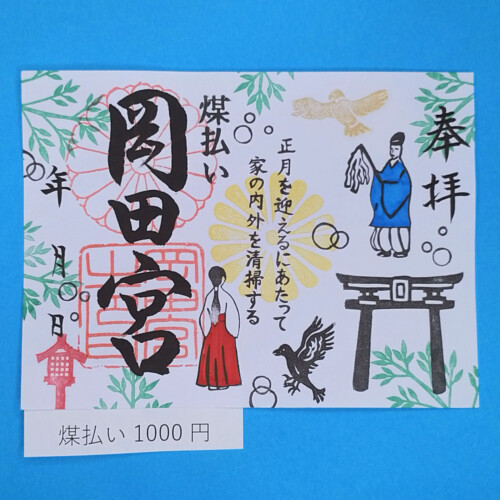 奉拝
正月を迎えるにあたって
家の内外を清掃する
煤払い
岡田宮
年
月
日
煤払い 1000 円